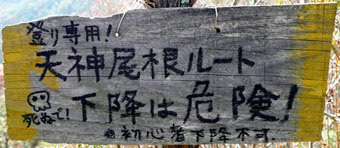 登り専用!
天神尾根ルート
下降は危険!
死ぬで!
※初心者下降不可